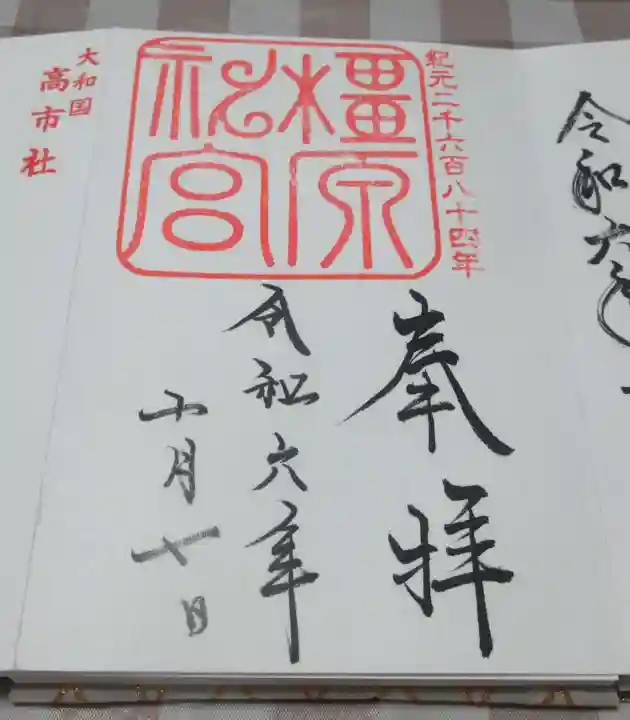 令和六年
紀元二千六百八十四年
橿原
神宮
奉拝
令和六年
月七日
大和国
高市社